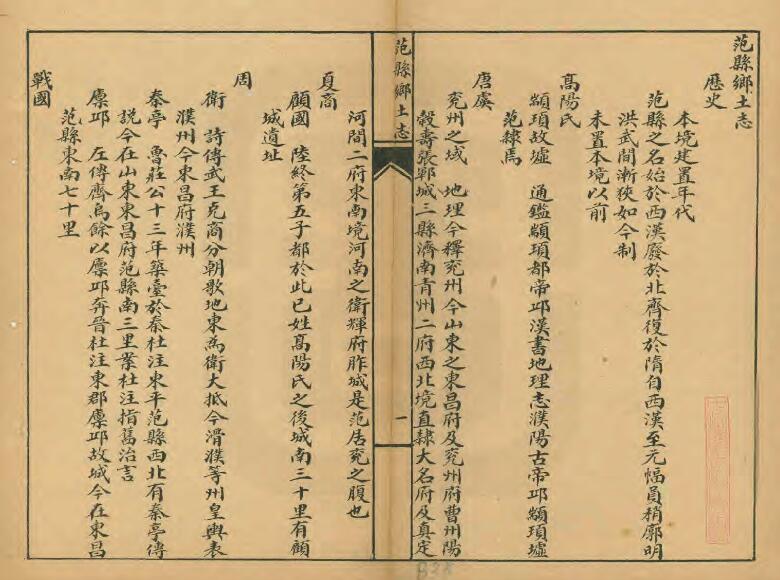 范縣鄉土志
歷史
本境建置年代
范縣之名始於西漢廢於北齊復於隋自西漢至元幅員稍廓明
洪武間漸狹如今制
未置本境以前
高陽氏
顓頊故墟 通鑑顓頊都帝邱漢書地理志濮陽古帝邱顓頊墟
范隸焉
唐虞
兖州之域 地理今釋兖州今山東之東昌府及兖州府曹州陽
穀壽張鄆城三縣濟南青州二府西北境直隸大名府及真定
范縣鄉土志
一
河間二府東南境河南之衛輝府胙城是范居兖之腹也
夏商
顧國 陸終第五子都於此已姓高陽氏之後城南三十里有顧
城遺址
周
衛 詩傳武王克商分朝歌地東為衛大抵今滑濮等州皇輿表
濮州今東昌府濮州
秦亭 魯莊公十三年築臺於秦杜注東平范縣西北有秦亭傳
說今在山東東昌府范縣南三里案杜注指舊治言
廩邱 左傳齊烏餘以廩邱奔晉杜注東郡廩邱故城今在東昌
范縣東南七十里
戰國